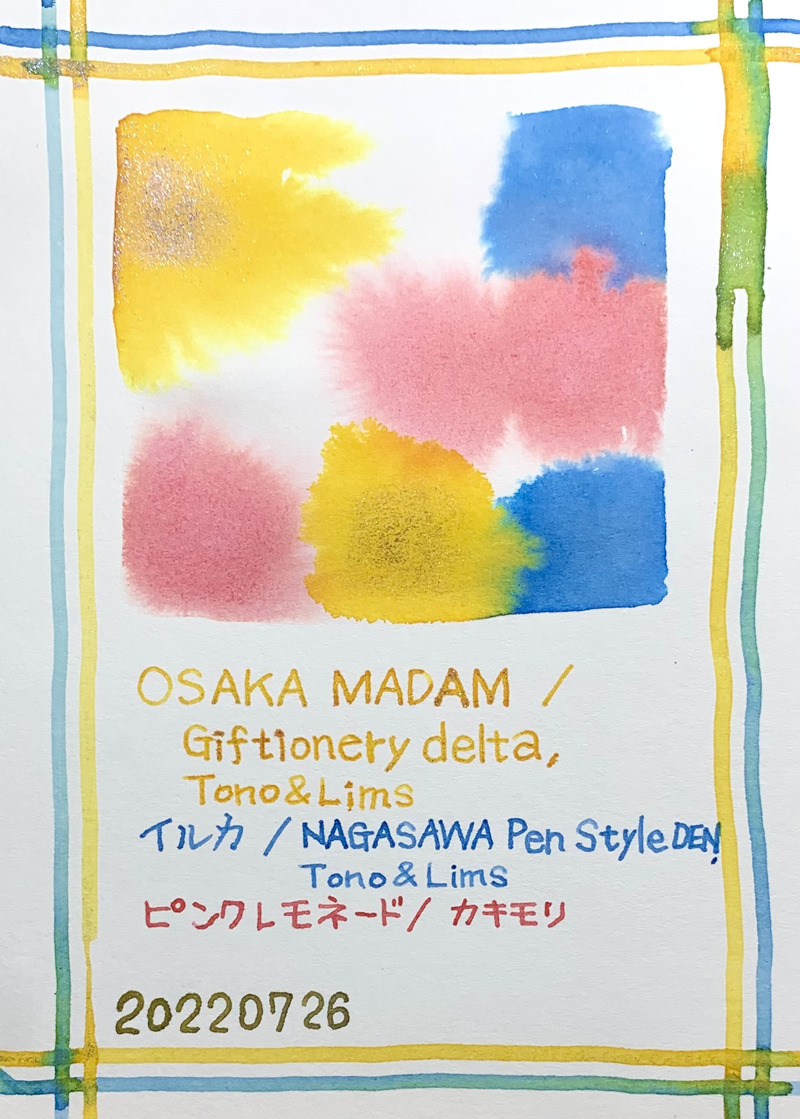 OSAKA MADAM /
Giftionery delta,
Tono&Lims
イルカ / NAGASAWA Pen Style DEN,
Tono&Lims
ピンクレモネード/ カキモリ
20220726